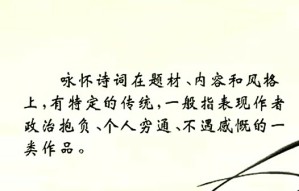 咏怀诗词在题材、内容和风格
上,有特定的传统,一般指表现作者
政治抱负、个人穷通、不遇感慨的一
类作品。